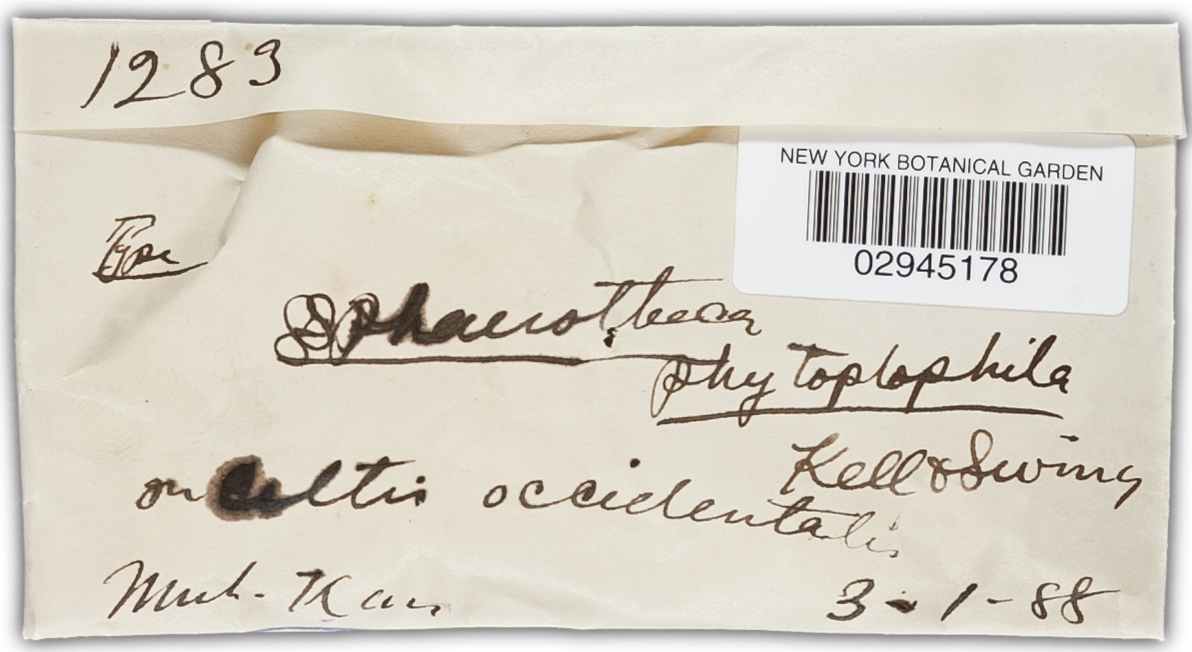 1283
NEW YORK BOTANICAL GARDEN
02945178
Type
Sphaerotheca
phytoptophila
Kell & Swing
on Celtis occidentalis
Manh. Kan
3-1-88